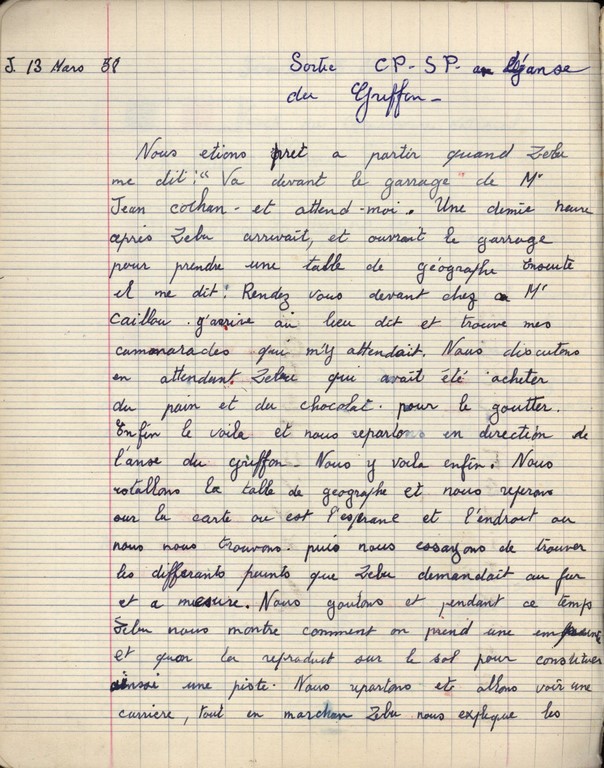 J. 13 Mars 58 Sortie CP- SP- a l'anse
du Griffon-
Nous etions pret a partir quand Zebu
me dit : " Va devant le garrage de Mr
Jean cochan - et attend-moi. Une demie heure
après Zebu arrivait, et ouvrait le garrage
pour prendre une table de géographe Ensuite
il me dit : Rendez vous devant chez Mr
Caillou. j'arrive au lieu dit et trouve mes
camarades qui m'y attendait. Nous discutons
en attendant Zebu qui avait été acheter
du pain et du chocolat. pour le goutter.
Enfin le voila et nous repartons en direction de
l'anse du griffon- Nous y voila enfin. Nous
installons la table de geographe et nous reperons
sur la carte ou est l'esperance et l'endroit ou
nous nous trouvons. puis nous essayons de trouver
les differants points que Zebu demandait au fur
et a mesure. Nous goutons et pendant ce temps
Zebu nous montre comment on prend une empreinte
et quon la reproduit sur le sol pour constituer
ainsi une piste. Nous repartons et allons voir une
carriere, tout en marchan Zebu nous explique les